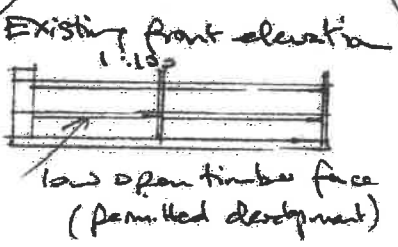 Existing front elevation
1:100
low open timber fence
(permitted development)